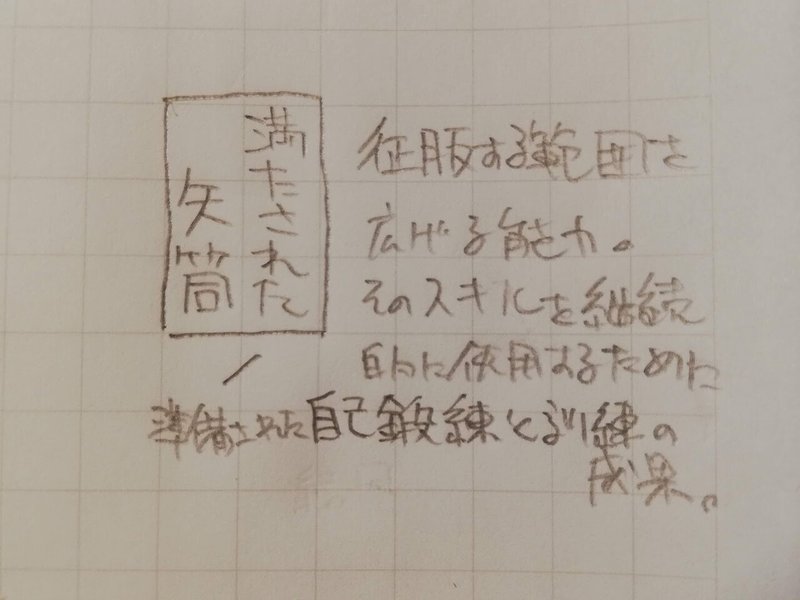 満たされた
矢筒
征服する範囲を
広げる能力。
そのスキルを継続
的に使用するために
準備された自己鍛練と訓練の
成果。